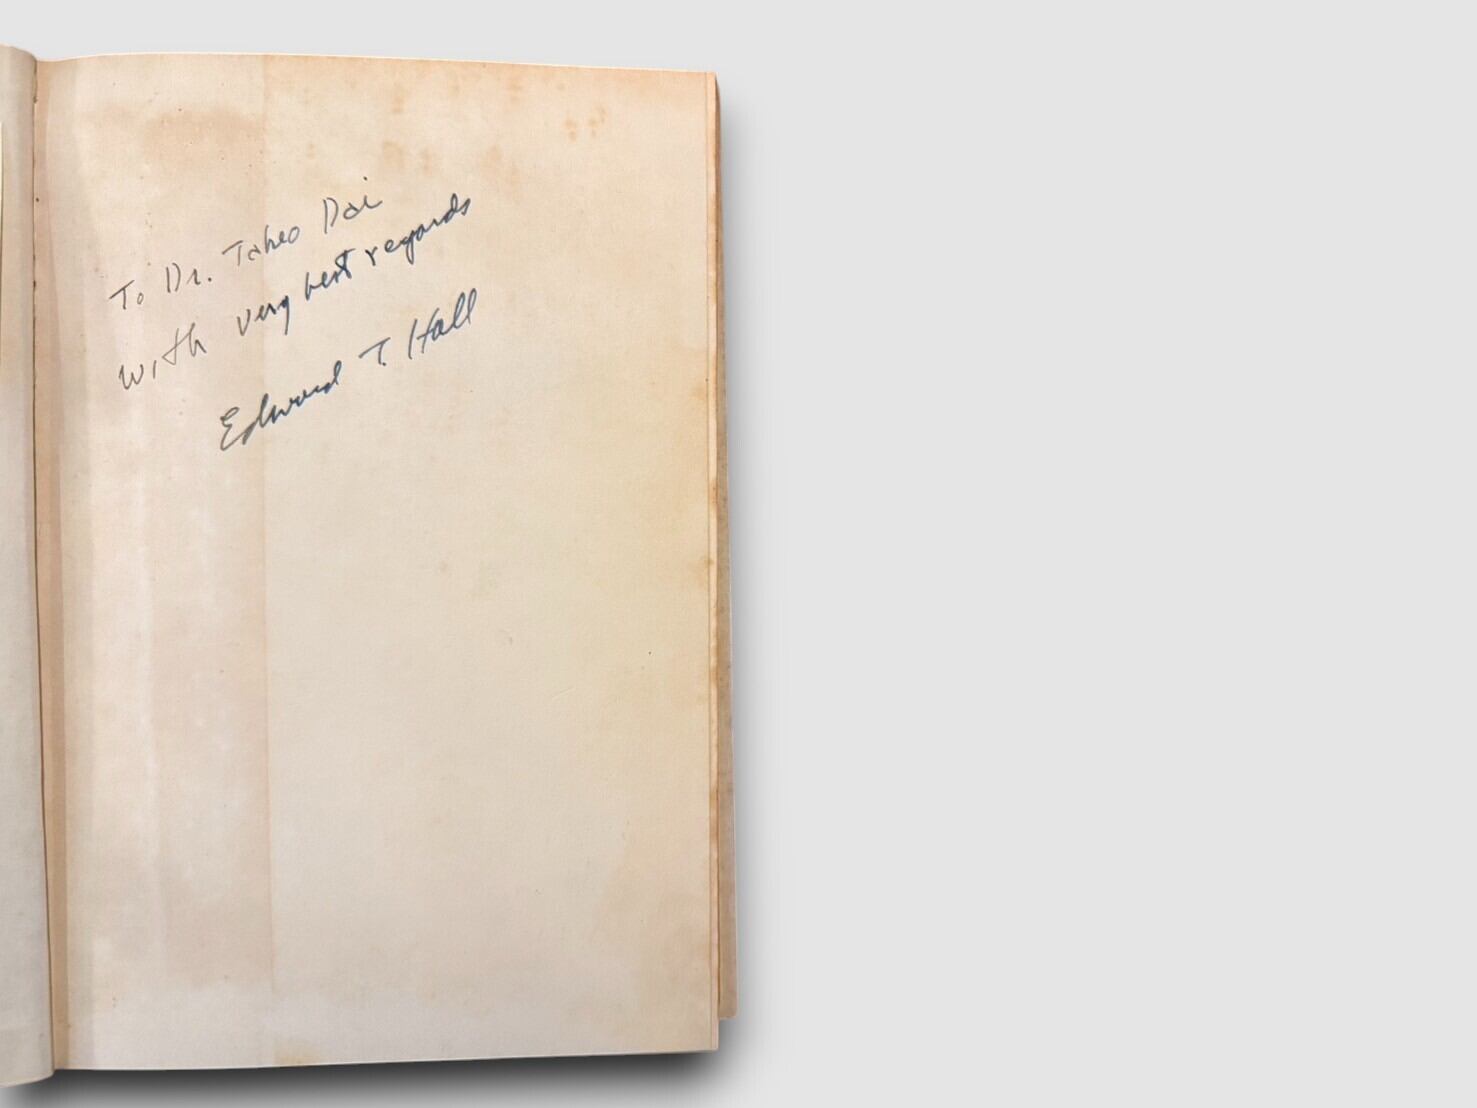 To Dr. Takeo Doi
with very best regards
Edward T. Hall